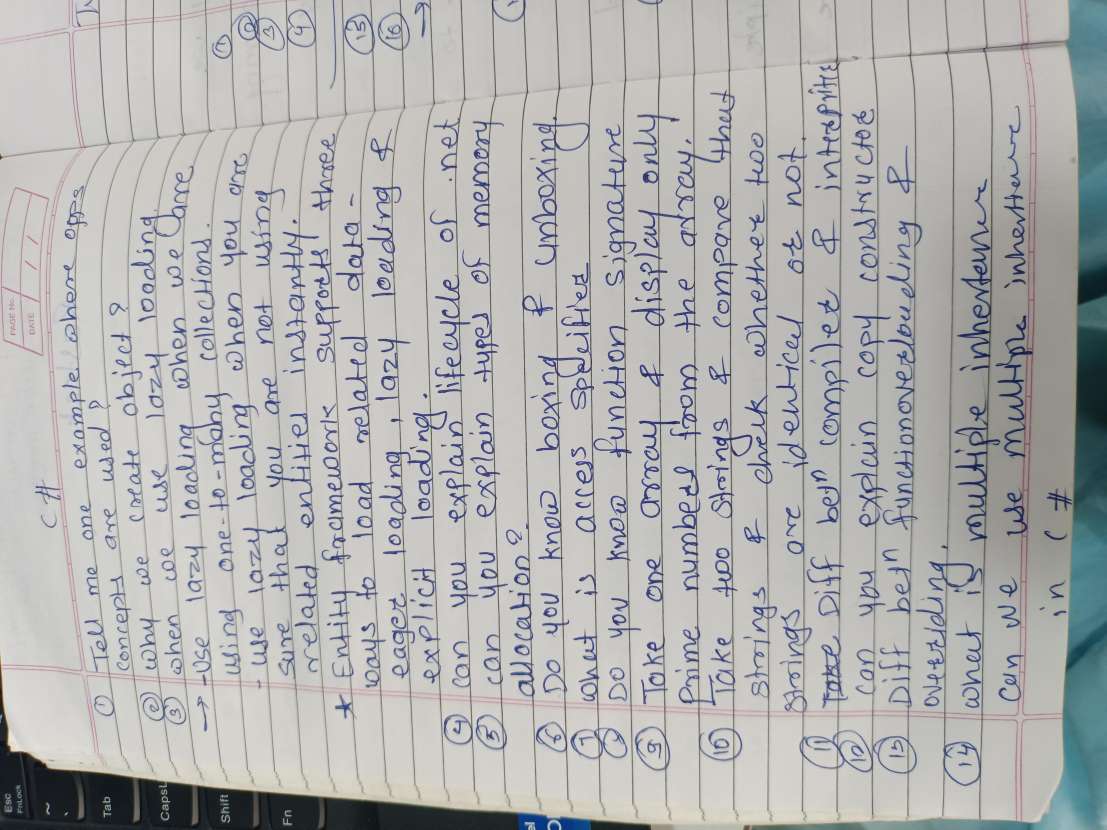 Esc
FnLock
Tab
CapsL
Shift
Fn
PAGE No.
DATE / /
C #
① Tell me one example where opps
concepts are used ?
② Why we create object ?
③ when we use lazy loading.
→ - Use lazy loading when we are
using one-to-many collections.
- use lazy loading when you are
sure that you are not using
related entities instantly.
* Entity framework supports three
ways to load related data -
eager loading, lazy loading &
explicit loading.
④ can you explain lifecycle of .net
⑤ can you explain types of memory
allocation ?
⑥ Do you know boxing & unboxing.
⑦ what is access specifier
⑧ Do you know function signature
⑨ Take one array & display only
prime numbers from the array.
⑩ Take two strings & compare that
strings & check whether two
strings are identical or not.
⑪ Take Diff betn compiler &
⑫ can you explain copy constructor
⑬ Diff betn functionoverloading &
overriding.
⑭ what is multiple
can we use multiple
in C #
①
②
③
④
15
16
→